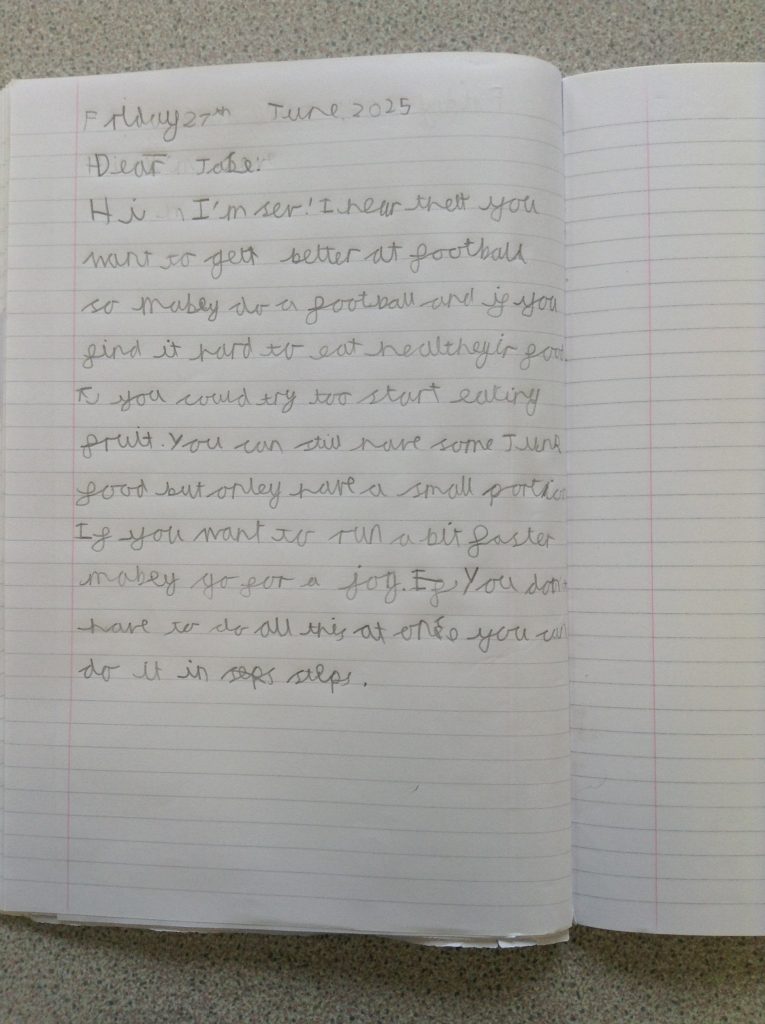 Friday 27th June 2025
Dear Jake!
Hi I'm ser! I hear thett you
want to gett better at football
so mabey do a football and if you
find it hard to eat healtheyir foo
you could try too start eating
fruit. You can still have some Junk
food but onley have a small portion
If you want to run a bit faster
mabey go for a jog. If You don't
have to do all this at once you can
do it in seps steps.